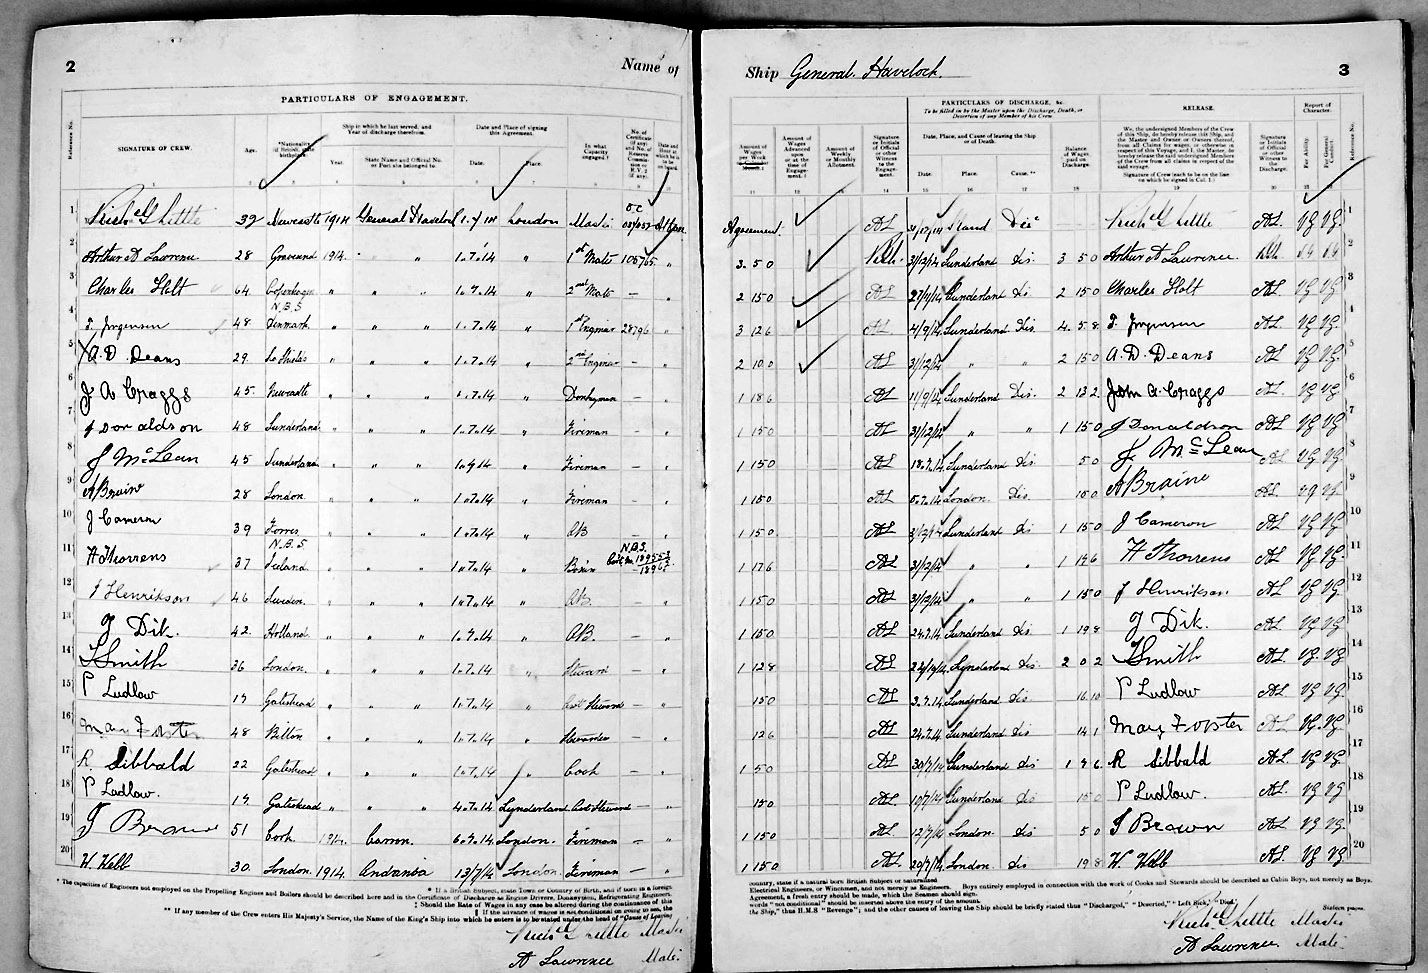 2
Name of
PARTICULARS OF ENGAGEMENT.
Reference No.
SIGNATURE OF CREW.
Age.
*Nationality (if British, state birthplace).
Ship in which he last served, and Year of discharge therefrom.
Year.
State Name and Official No. or Port she belonged to.
Date and Place of signing this Agreement.
Date.
Place.
In what Capacity engaged.
No. of Certificate (if any)
1 39 Newcastle 1914 General Havelock 1.7.14 London Master
2 Arthur A Lawrence 28 Gravesend 1914 " " 1.7.14 " 1st Mate 105765 "
3 Charles Holt 64 Copenhagen N.B.S " " " 1.7.14 " 2nd Mate — "
4 F. Jorgensen 48 Denmark " " " 1.7.14 " 1st Engineer 28796 "
5 A. D. Deans 29 So Shields " " " 1.7.14 " 2nd Engineer — "
6 J A Craggs 45 Newcastle " " " 1.7.14 " Donkeyman — "
7 J Donaldson 48 Sunderland " " " 1.7.14 " Fireman — "
8 J McLean 45 Sunderland " " " 1.7.14 " Fireman — "
9 A Braine 28 London " " " 1.7.14 " Fireman — "
10 J Cameron 39 Forres N.B.S " " " 1.7.14 " AB — "
11 H Thorrens 37 Ireland " " " 1.7.14 " Bosun N.B.S.
12 J Henrikson 46 Sweden " " " 1.7.14 " AB — "
13 J Dik. 42 Holland " " " 1.7.14 " AB — "
14 J Smith 36 London " " " 1.7.14 " Steward — "
15 P Ludlow 17 Gateshead " " " 1.7.14 " Asst Steward — "
16 Mary Forster 48 Bilton " " " 1.7.14 " Stewardess — "
17 R. Sibbald 22 Gateshead " " " 1.7.14 " Cook — "
18 P Ludlow. 17 Gateshead " " " 4.7.14 Sunderland Asst Steward — "
19 J Brown 51 Cork 1914 Carron. 6.7.14 London. Fireman — "
20 W. Webb 30 London 1914 13/7/14 London Fireman — "
* The capacities of Engineers not employed on the Propelling Engines and Boilers should be described here and in the Certificate of Discharge as Engine Drivers, Donkeymen, Refrigerating Engineers
* If a British Subject, state Town or Country of Birth, and if born in a foreign
‡ Should the Rate of Wages in any case be altered during the continuance of this
‖ If the advance of wages is not conditional on going to sea, the
** If any member of the Crew enters His Majesty's Service, the Name of the King's Ship into which he enters is to be stated under the head of "Cause of Leaving
Master
A Lawrence Mate.
Ship General Havelock.
3
PARTICULARS OF DISCHARGE, &c.
To be filled in by the Master upon the Discharge, Death, or Desertion of any Member of his Crew.
RELEASE.
Report of Character.
Amount of Wages per Week
Amount of Wages Advanced or at the time of Engagement.
Amount of Weekly or Monthly Allotment.
Signature or Initials of Official or other Witness to the
Date, Place, and Cause of leaving the Ship or of Death.
Date.
Place.
Cause.**
Balance of Wages paid on Discharge.
We, the undersigned Members of the Crew of this Ship, do hereby release this Ship, and the Master and Owner or Owners thereof, from all Claims for wages, or otherwise in respect of this Voyage, and I, the Master, do hereby release the said undersigned Members of the Crew from all claims in respect of the said voyage.
Signature of Crew (each to be on the line on which he signed in Col. 1.)
Signature or Initials of Official or other Witness to the Discharge.
For Ability.
For General Conduct.
Reference No.
Agreement. AL AL VG VG 1
3. 5 0 31/12/14 Sunderland Dis. 3 5 0 Arthur A Lawrence. 2
2 15 0 AL Sunderland Dis 2 15 0 Charles Holt AL VG VG 3
3 12 6 AL 4/9/14 Sunderland Dis. 4. 5. 8 F. Jorgensen AL VG VG 4
2 10. 0 AL 31/12/14 " " 2 15 0 A. D. Deans AL VG VG 5
1 18 6 AL 11/9/14 Sunderland Dis. 2 13 2 John A. Craggs AL VG VG 6
1 15 0 AL 31/12/14 " " 1 15 0 J Donaldson AL VG VG 7
1 15 0 AL 18.7.14 Sunderland Dis 5 0 J McLean AL VG VG 8
1 15 0 AL 5.7.14 London. Dis 10 0 A Braine AL VG VG 9
1 15 0 AL 31/12/14 Sunderland Dis 1 15 0 J Cameron AL VG VG 10
1 17 6 AL 31/12/14 " " 1 17 6 H Thorrens AL VG VG 11
1 15 0 AL 31/12/14 " " 1 15 0 J Henrikson AL VG VG 12
1 15 0 AL 24.7.14 Sunderland Dis 1 19 8 J Dik. AL VG VG 13
1 12 8 AL Sunderland Dis. 2 0 2 J Smith AL VG VG 14
15 0 AL 3.7.14 Sunderland Dis 16.10 P Ludlow AL VG VG 15
12 6 AL 24.7.14 Sunderland Dis 14 1 Mary Forster AL VG VG 16
1 5 0 AL 30/7/14 Sunderland Dis 1 7 6 R Sibbald AL VG VG 17
15 0 AL 10/7/14 Sunderland Dis 15 0 P Ludlow. AL VG VG 18
1 15 0 AL 12/7/14 London. Dis 5 0 J Brown AL VG VG 19
1 15 0 AL 20/7/14 London Dis 19 8 W Webb AL VG VG 20
country, state if a natural born British Subject or naturalized
Electrical Engineers, or Winchmen, and not merely as Engineers. Boys entirely employed in connection with the work of Cooks and Stewards should be described as Cabin Boys, not merely as Boys.
Agreement, a fresh entry should be made, which the Seaman should sign.
words "not conditional" should be inserted above the entry of the amount.
the Ship," thus H.M.S "Revenge"; and the other causes of leaving the Ship should be briefly stated thus "Discharged," "Deserted," "Left Sick," "Died."
Sixteen pages.
Master
A Lawrence. Mate.